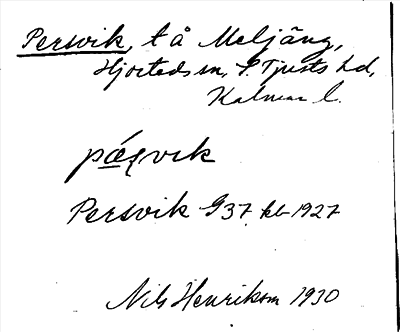 Persvik, t å Meljäng,
Hjorteds sn, S. Tjusts hd,
Kalmar l.
pæ̨ʂvik
Persvik G37 kb 1927
Nils Henrikson 1930